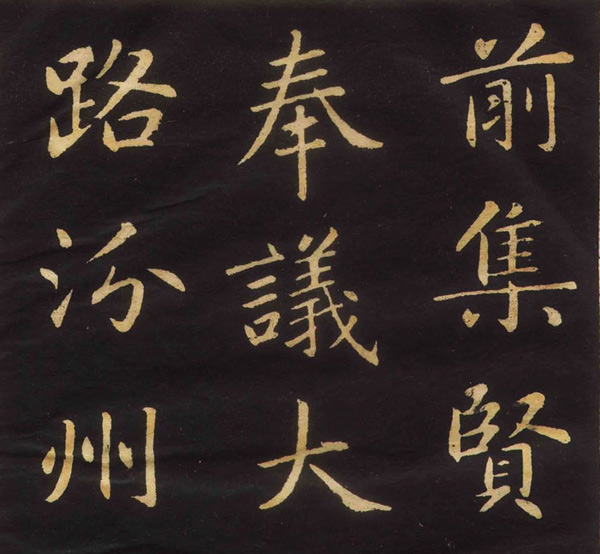 前集賢
奉議大
路汾州